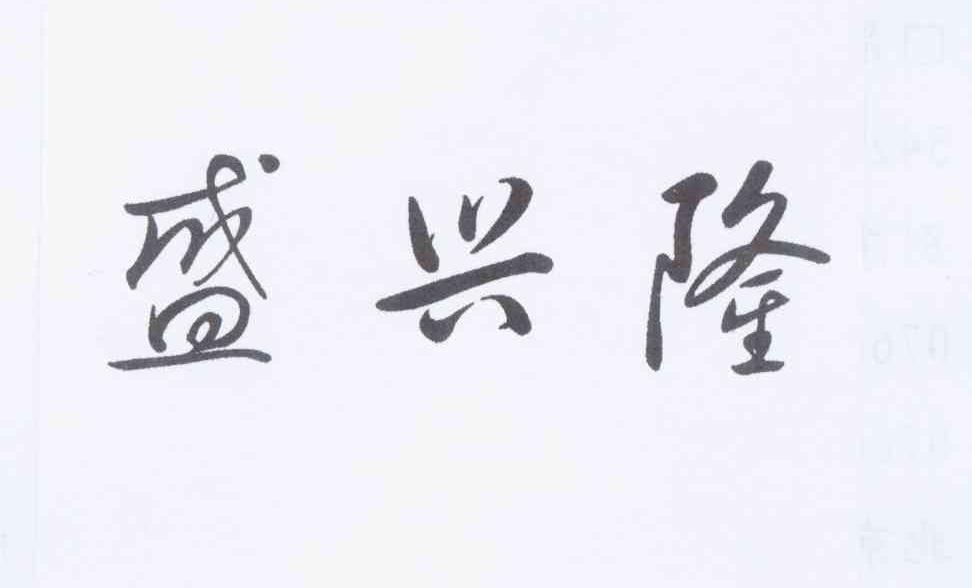 盛兴隆